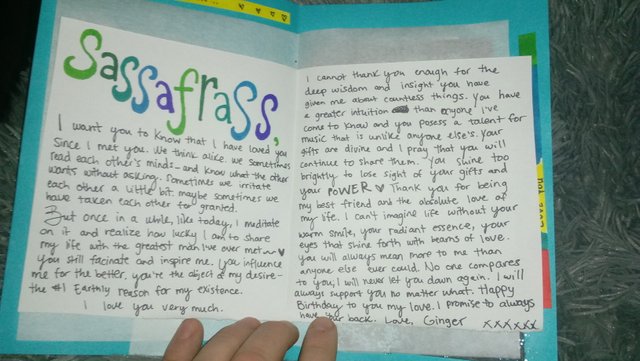 Sassafrass,
I want you to know that I have loved you
since I met you. We think alike. we sometimes
read each other's minds- and know what the other
wants without asking. Sometimes we irritate
each other a little bit. maybe sometimes we
have taken each other for granted.
But once in a while, like today, I meditate
on it and realize how lucky I am to share
my life with the greatest man I've ever met
you still facinate and inspire me. You influence
me for the better. you're the object of my desire-
the #1 Earthly reason for my existence.
I love you very much.
I cannot thank you enough for the
deep wisdom and insight you have
given me about countless things. You have
a greater intuition than anyone I've
come to know and you posess a talent for
music that is unlike anyone else's. Your
gifts are divine and I pray that you will
continue to share them. You shine too
brightly to lose sight of your gifts and
your POWER ♥ Thank you for being
my best friend and the absolute love of
my life. I can't imagine life without your
warm smile, your radiant essence, your
eyes that shine forth with beams of love.
you will always mean more to me than
anyone else ever could. No one compares
to you, I will never let you down again. I will
always support you no matter what. Happy
Birthday to you my love. I promise to always
have your back. Love, Ginger xxxxxx
Love You